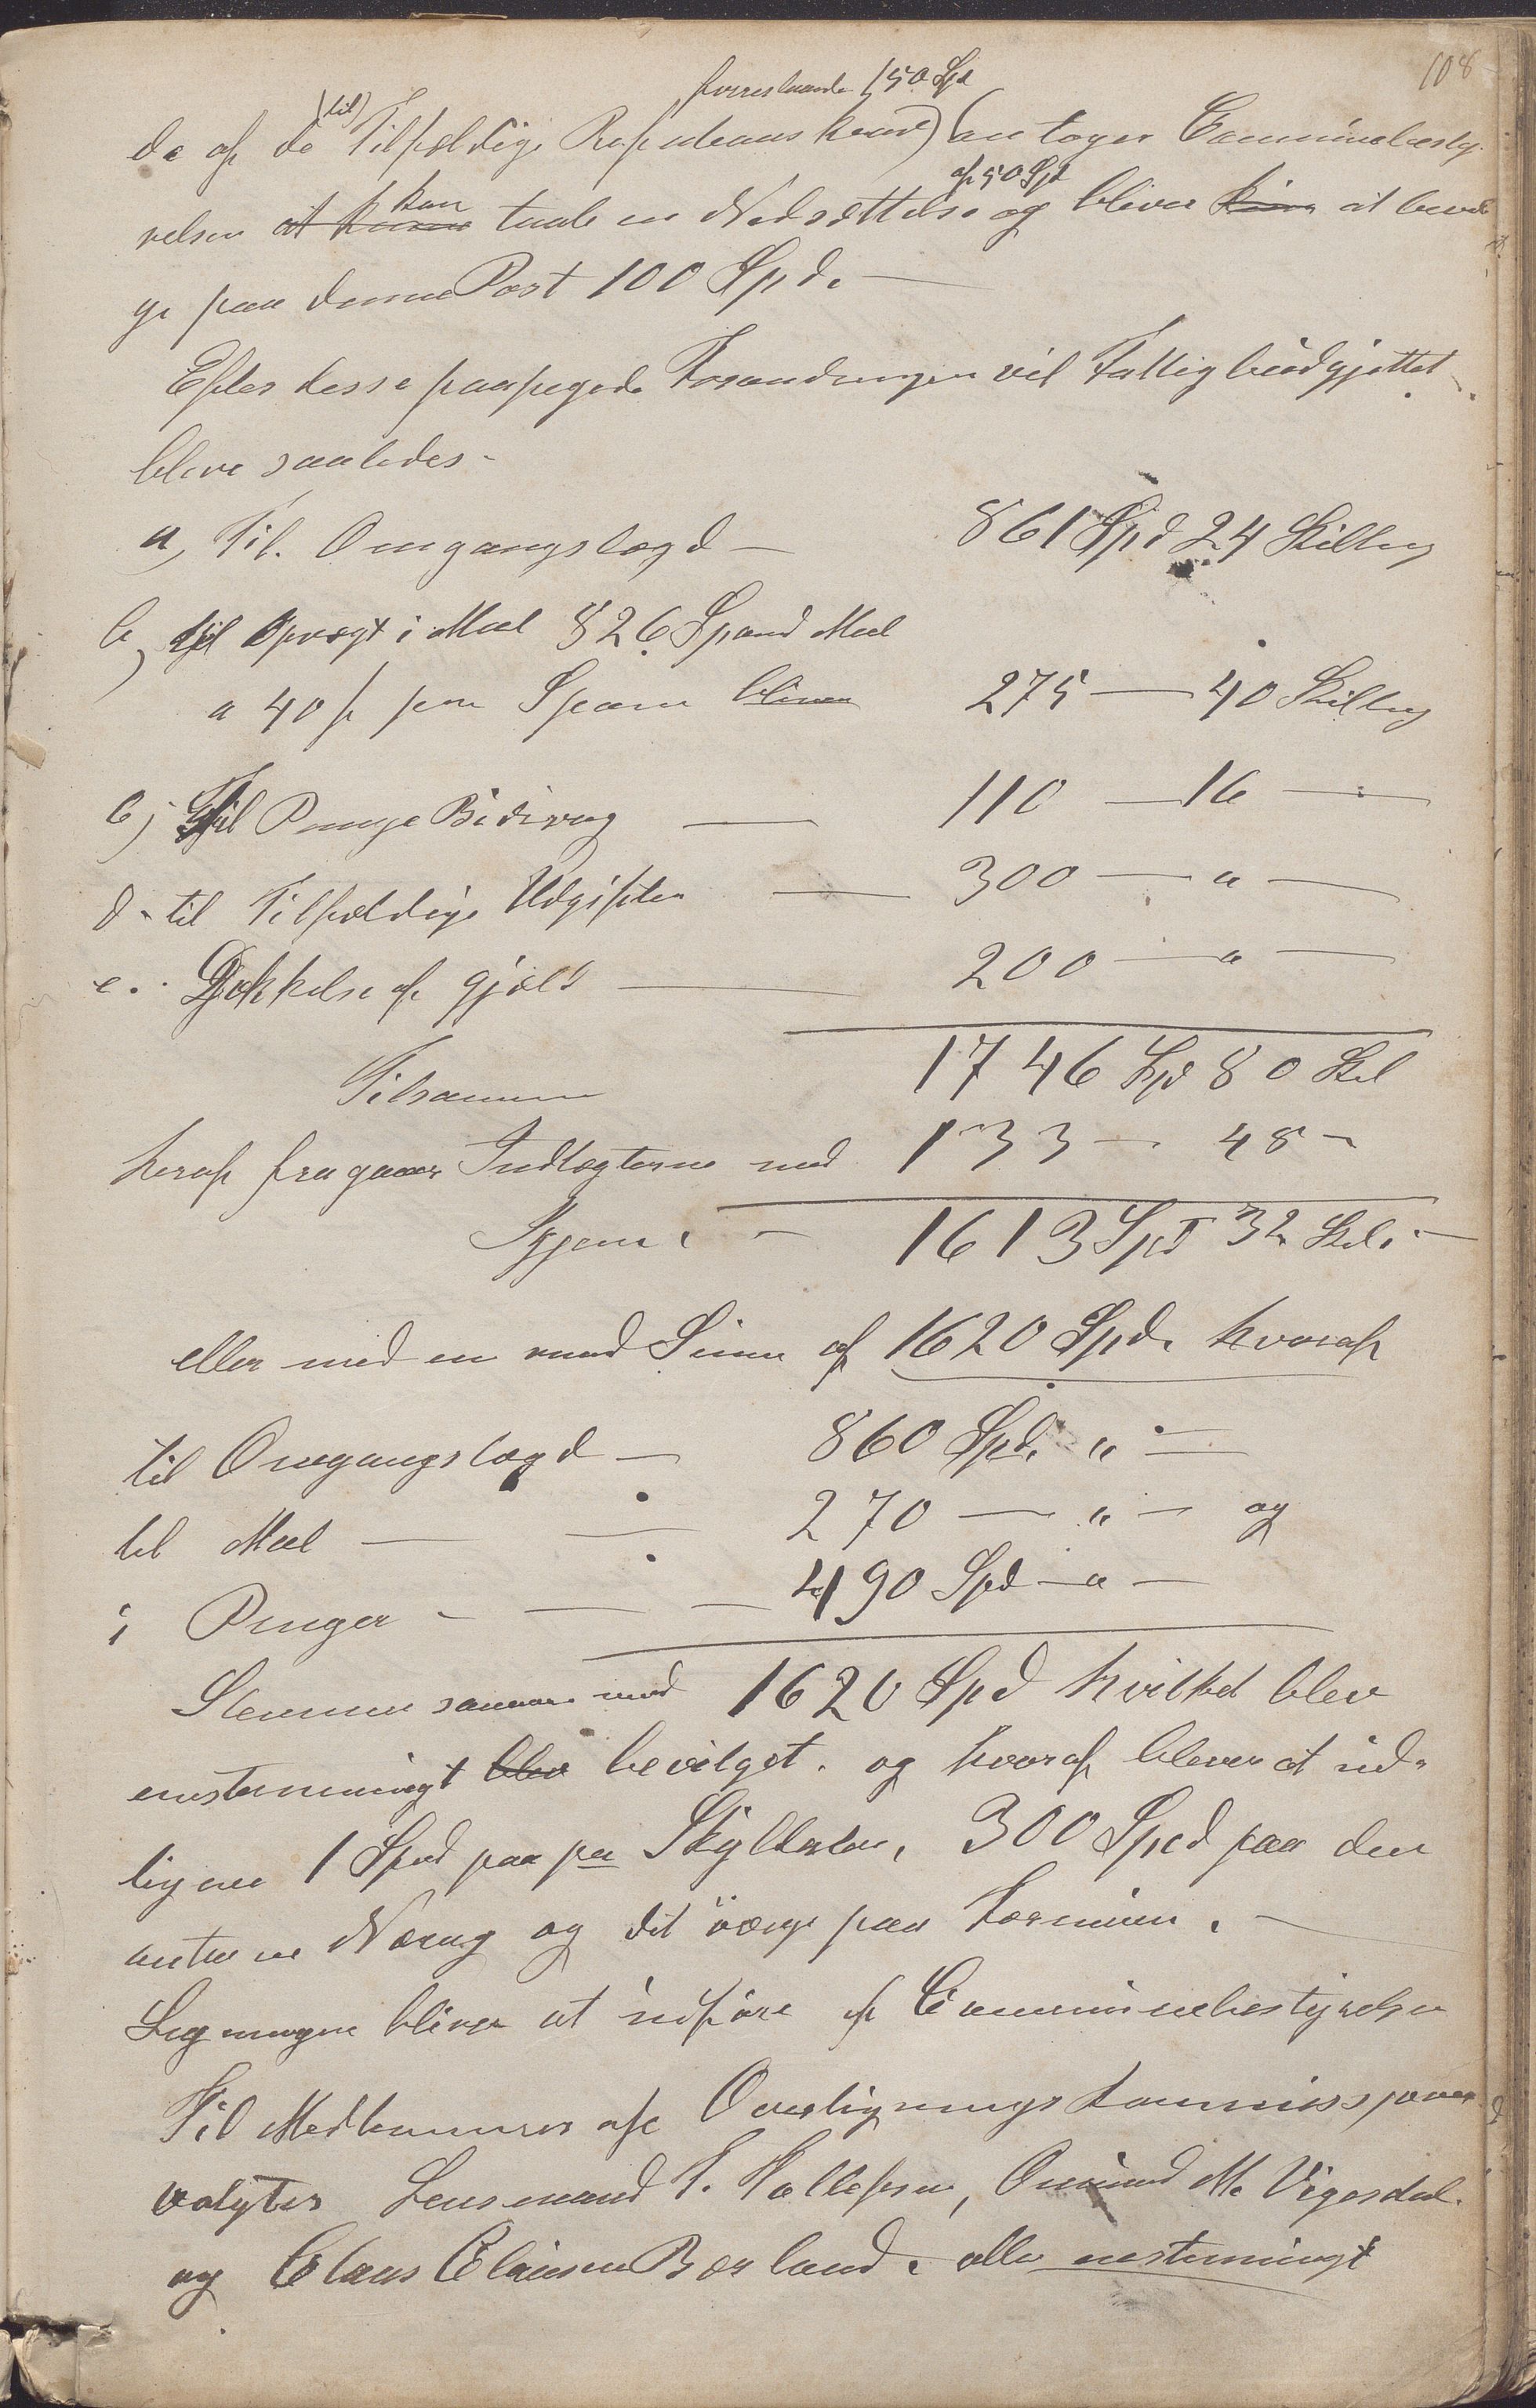 108
foreslaaede 150 Spd
de af de (til) Tilfeldige antager Communebesty-
relsen at kunne kan taale en Nedsættelse af 50 Spd og bliver kun at bevil
ge paa denne Post 100 Spd. —
Efter disse paapegede Forandringer vil Fattigbudgjettet
blive saaledes -
a, Til. Omgangslægd — 861 Spd 24 Skilling
b, til Opvægt i Mæl 826 Spand Mæl
a 40 ß pr Span bliver 275 — 40 Skilling
C, Til Penge Bidrag — 110 — 16 —
d - til Tilfældige Udgifter — 300 — " —
e. Dækkelse af gjæld — 200 — " —
Tilsammen 1746 Spd 80 Skil
heraf fragaaer Indtægterne med 133 — 48 -
Igjen. — 1613 Spd 32 Skil. —
eller med en rund Sum af 1620 Spd. hvoraf
til Omgangslægd — 860 Spd. " —
til Mæl — 270 — " — og
i Penger - — 490 Spd — " —
sammen med 1620 Spd hvilket blev
enstemmingt blev bevilget. og hvoraf bliver at ud-
ligne 1 Spd paa pr Skylddaler, 300 Spd paa den
antagne Næring og det øvrige paa Formuen. —
Ligningen bliver at udføre af Communebestyrelsen
Til Medlemmer af Overligningskommissjonen
valgtes Lensmand T. Hallefsen, Omund M. Vigesdal.
og Claus Clausen Børland. alle enstemmingt